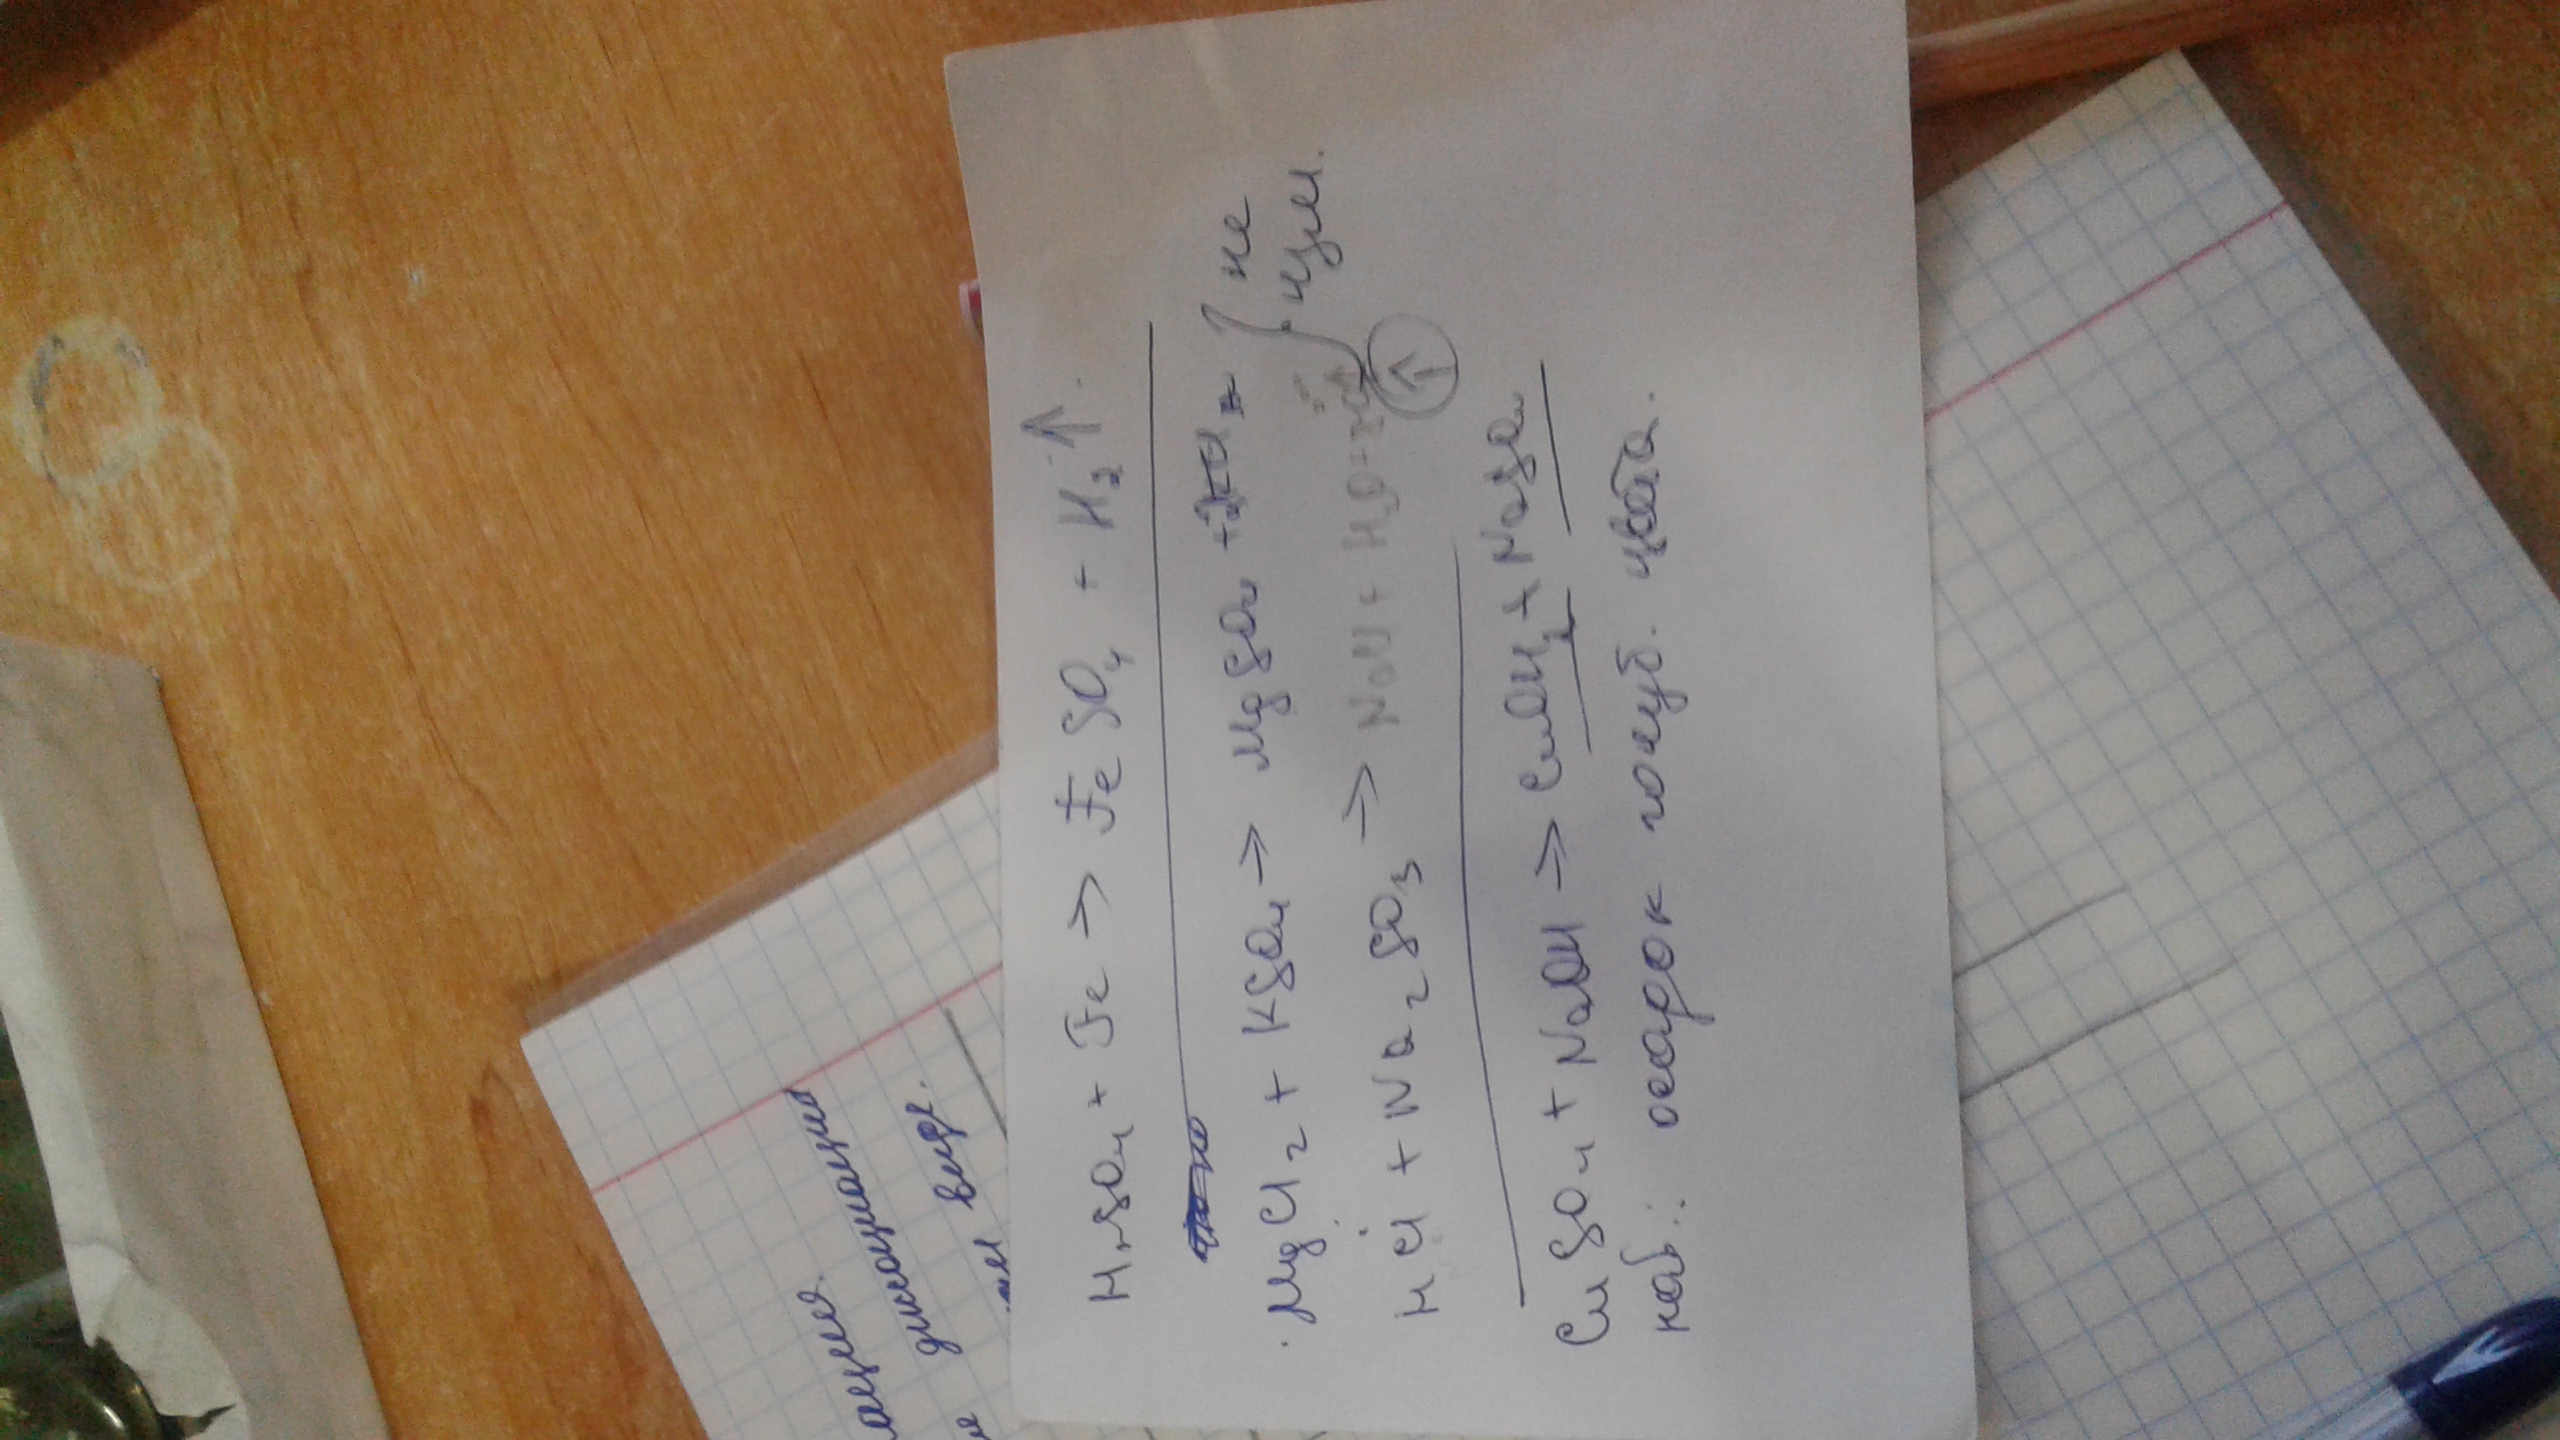 H₂SO₄ + Fe → FeSO₄ + H₂↑
MgCl₂ + KSO₄ → MgSO₄ + 2KCl
не
HCl + Na₂SO₃ → NaCl + H₂O +
↑
CuSO₄ + NaOH → CuOH₂ + NaSO₄
наб.: осадок голуб. цвета.
диссоциации
виде.